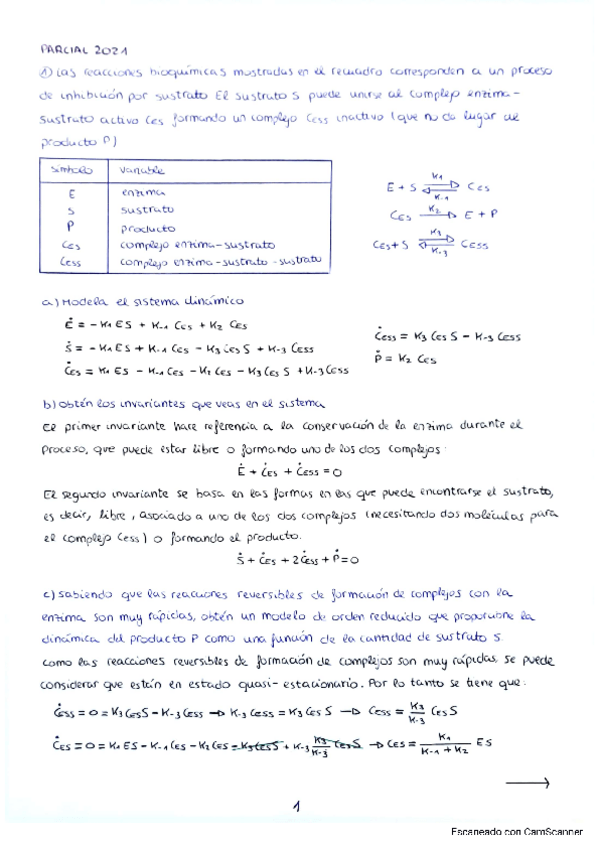 PARCIAL 2021
1) Las reacciones bioquímicas mostradas en el recuadro corresponden a un proceso
de inhibición por sustrato El sustrato S puede unirse al complejo enzima-
sustrato activo CES formando un complejo CESS inactivo (que no da lugar al
producto P)
símbolo variable
E enzima
S sustrato
P producto
CES complejo enzima-sustrato
CESS complejo enzima-sustrato-sustrato
E + S ⇌ CES
K1
K-1
CES → E + P
K2
CES + S ⇌ CESS
K3
K-3
a) Modela el sistema dinámico
Ė = -K1 ES + K-1 CES + K2 CES
Ṡ = -K1 ES + K-1 CES - K3 CES S + K-3 CESS
ĊES = K1 ES - K-1 CES - K2 CES - K3 CES S + K-3 CESS
ĊESS = K3 CES S - K-3 CESS
Ṗ = K2 CES
b) Obtén los invariantes que veas en el sistema
El primer invariante hace referencia a la conservación de la enzima durante el
proceso, que puede estar libre o formando uno de los dos complejos:
Ė + ĊES + ĊESS = 0
El segundo invariante se basa en las formas en las que puede encontrarse el sustrato,
es decir, libre, asociado a uno de los dos complejos (necesitando dos moléculas para
el complejo CESS) o formando el producto.
Ṡ + ĊES + 2ĊESS + Ṗ = 0
c) Sabiendo que las reacciones reversibles de formación de complejos con la
enzima son muy rápidas, obtén un modelo de orden reducido que proporcione la
dinámica del producto P como una función de la cantidad de sustrato S
Como las reacciones reversibles de formación de complejos son muy rápidas, se puede
considerar que están en estado quasi-estacionario. Por lo tanto se tiene que:
ĊESS = 0 = K3 CES S - K-3 CESS → K-3 CESS = K3 CES S → CESS = K3/K-3 CES S
ĊES = 0 = K1 ES - K-1 CES - K2 CES - K3 CES S + K-3 K3/K-3 CES S → CES = K1/(K-1 + K2) ES
→
1
Escaneado con CamScanner